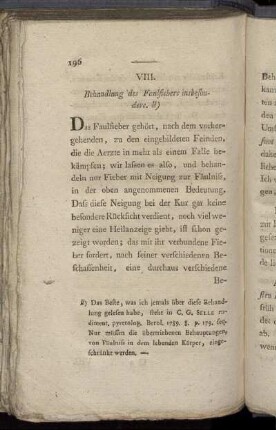 196
VIII.
Behandlung des Faulfiebers insbesondere. θ)
Das Faulfieber gehört, nach dem vorhergehenden, zu den eingebildeten Feinden,
die die Aerzte in mehr als einem Falle bekämpfen; wir lassen es also, und behandeln nur Fieber mit Neigung zur Fäulniss,
in der oben angenommenen Bedeutung.
Dass diese Neigung bei der Kur gar keine
besondere Rücksicht verdient, noch viel weniger eine Heilanzeige giebt, ist schon gezeigt worden; das mit ihr verbundene Fieber fordert, nach seiner verschiedenen Beschaffenheit, eine durchaus verschiedene
Be-
θ) Das Beste, was ich jemals über diese Behandlung gelesen habe, steht in C. G. SELLE rudiment. pyretolog. Berol. 1789. p. 179.
Nur müssen die übertriebenen Behauptungen
von Fäulniss in dem lebenden Körper, eingeschränkt werden. —